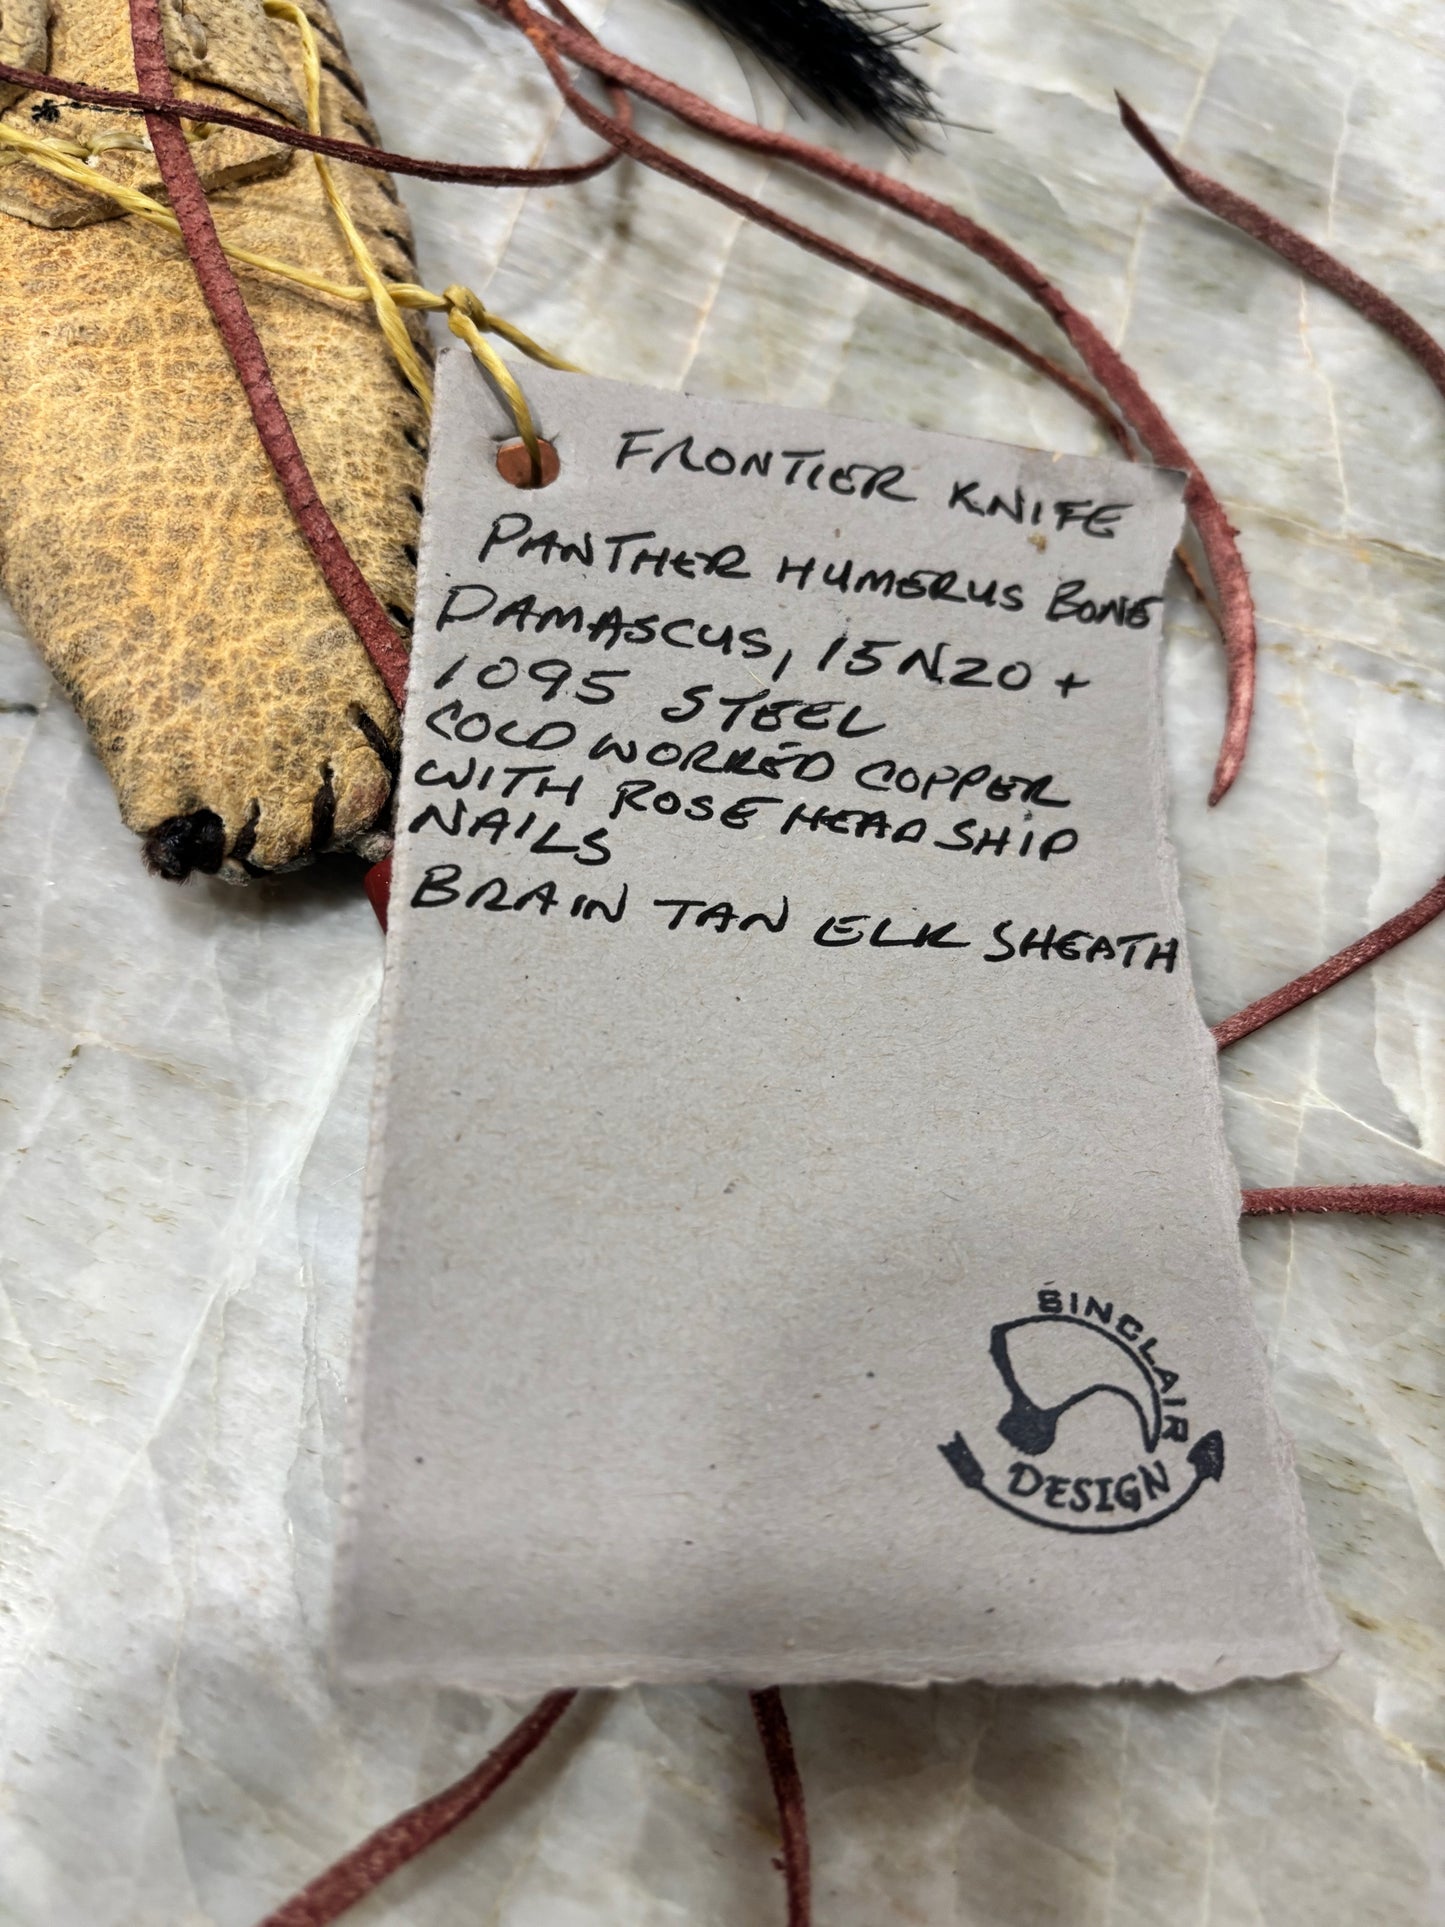 FRONTIER KNIFE
PANTHER HUMERUS BONE
DAMASCUS, 15N20 +
1095 STEEL
COLD WORKED COPPER
WITH ROSE HEAD SHIP
NAILS
BRAIN TAN ELK SHEATH
SINCLAIR
DESIGN